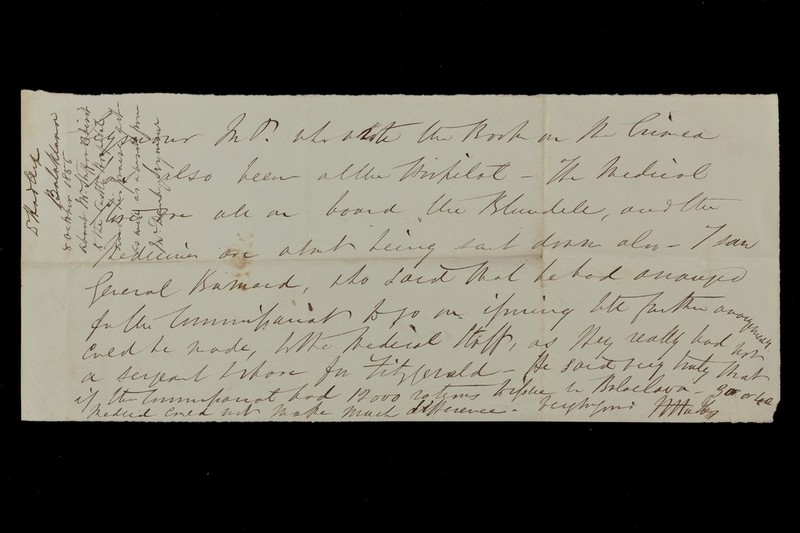 Seymour M.P. who wrote the Book on the Crimea
has also been at the Hospital - The Medical
are all on board the Blundell, and the
Medicines are about being sent down also - I saw
General Barnard, who said that he had arranged
for the Commissariat to go on issuing till further arrangements
could be made, to the Medical Staff, as they really had not
a sergeant to have for Fitzgerald - He said very truly that
if the Commissariat had 12,000 rations to issue in Balaclava - 30 or 40
Medical could not make much difference. very truly yours
Dr Hadley
Balaklava
8 October 1855
about
to the Castle Hospital
as well as a visit from
Mr Danby Seymour